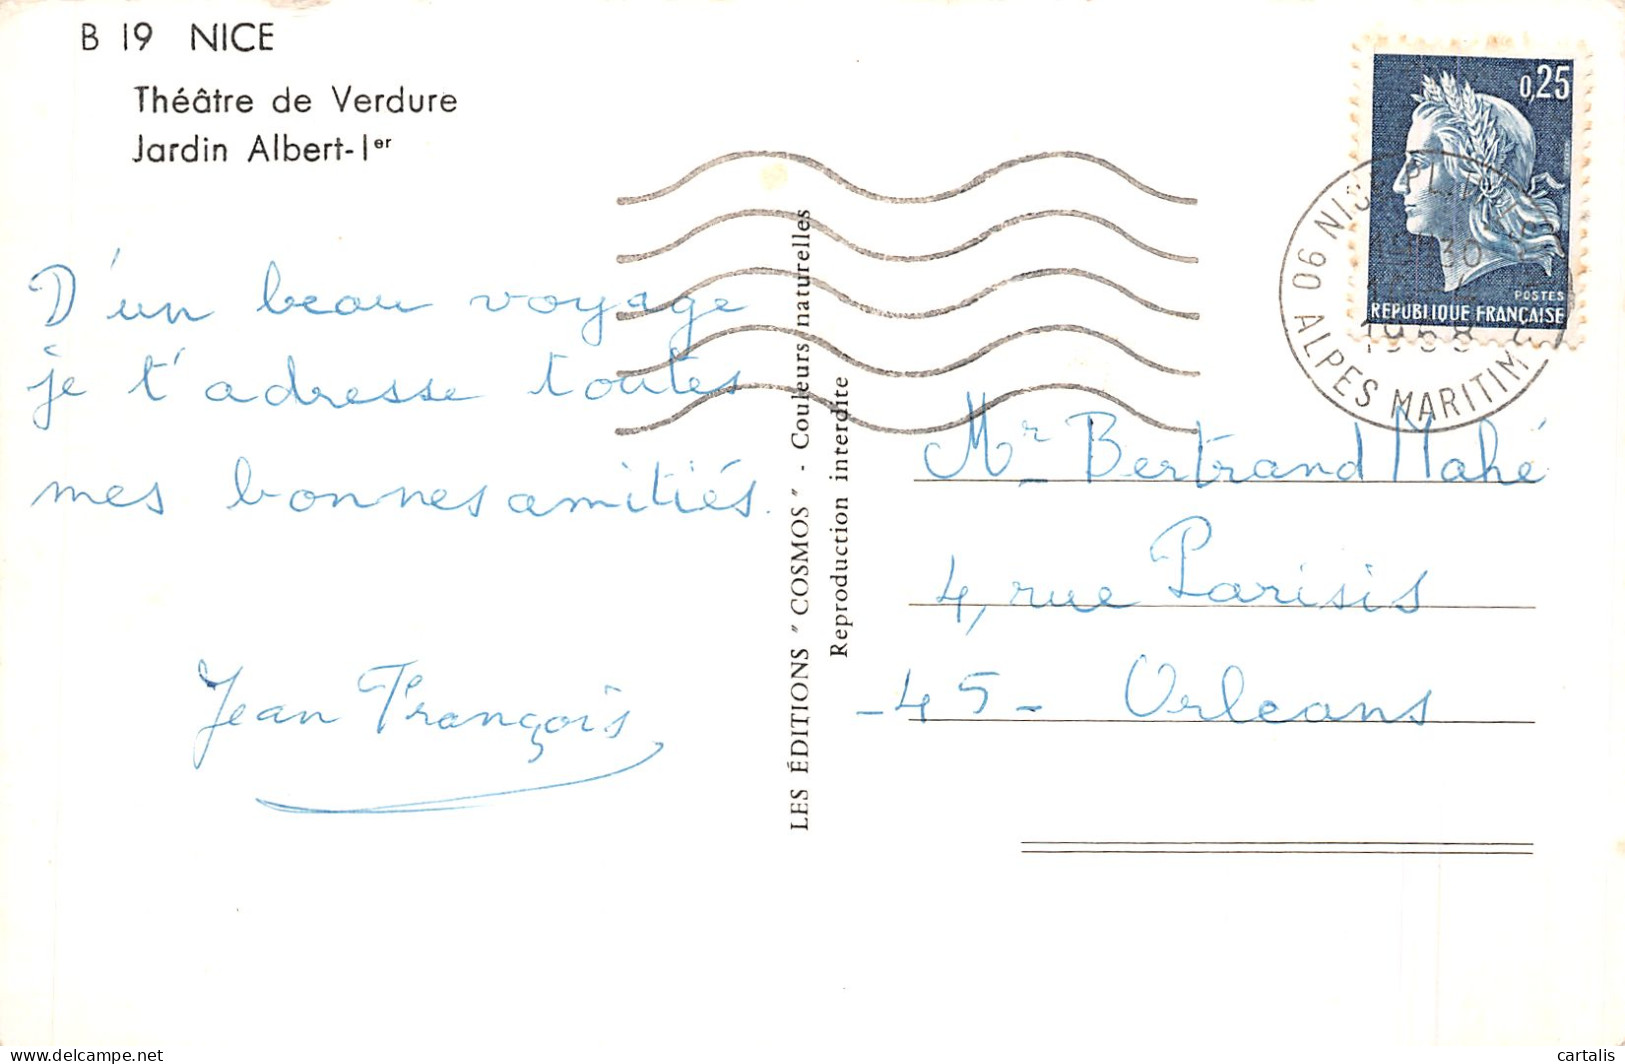 B 19 NICE
Théâtre de Verdure
Jardin Albert-Ier
D'un beau voyage
je t'adresse toutes
mes bonnes amitiés.
Jean François
LES ÉDITIONS "COSMOS" - Couleurs naturelles
Reproduction interdite
0,25
POSTES
REPUBLIQUE FRANÇAISE
06 ALPES MARITIM
1968
Mr Bertrand Mahé
4, rue Parisis
- 45 - Orleans
delcampe.net
cartalis